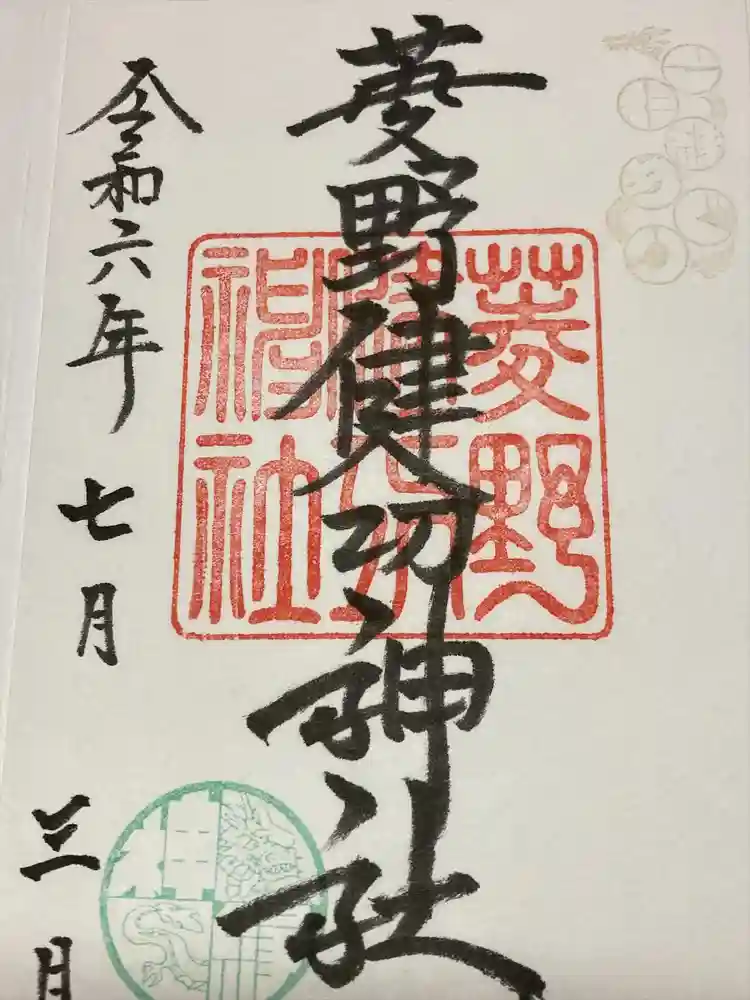 菱野健功神社
菱野
健功
神社
令和六年七月三日